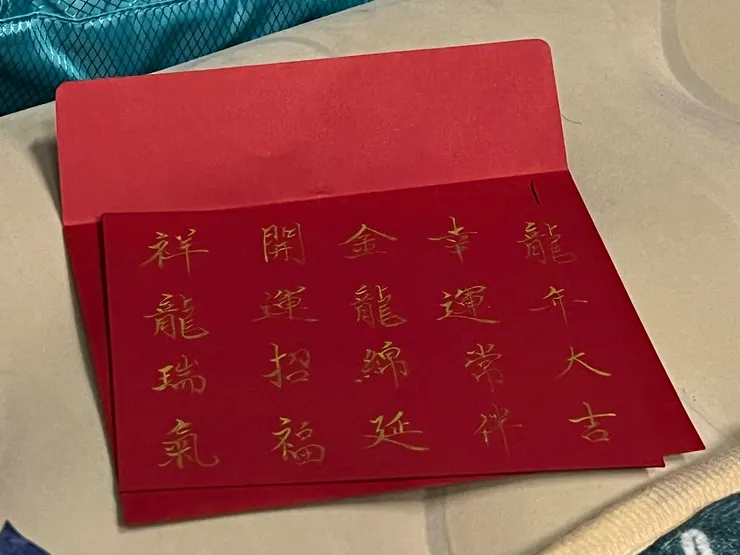 龍年大吉
幸運常伴
金龍綿延
開運招福
祥龍瑞氣